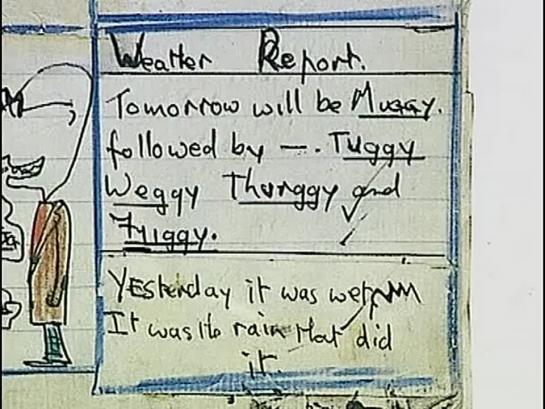 Weather Report.
Tomorrow will be Muggy.
followed by —. Tuggy
Weggy Thurggy and
Friggy.
Yesterday it was wet
It was the rain that did
it.